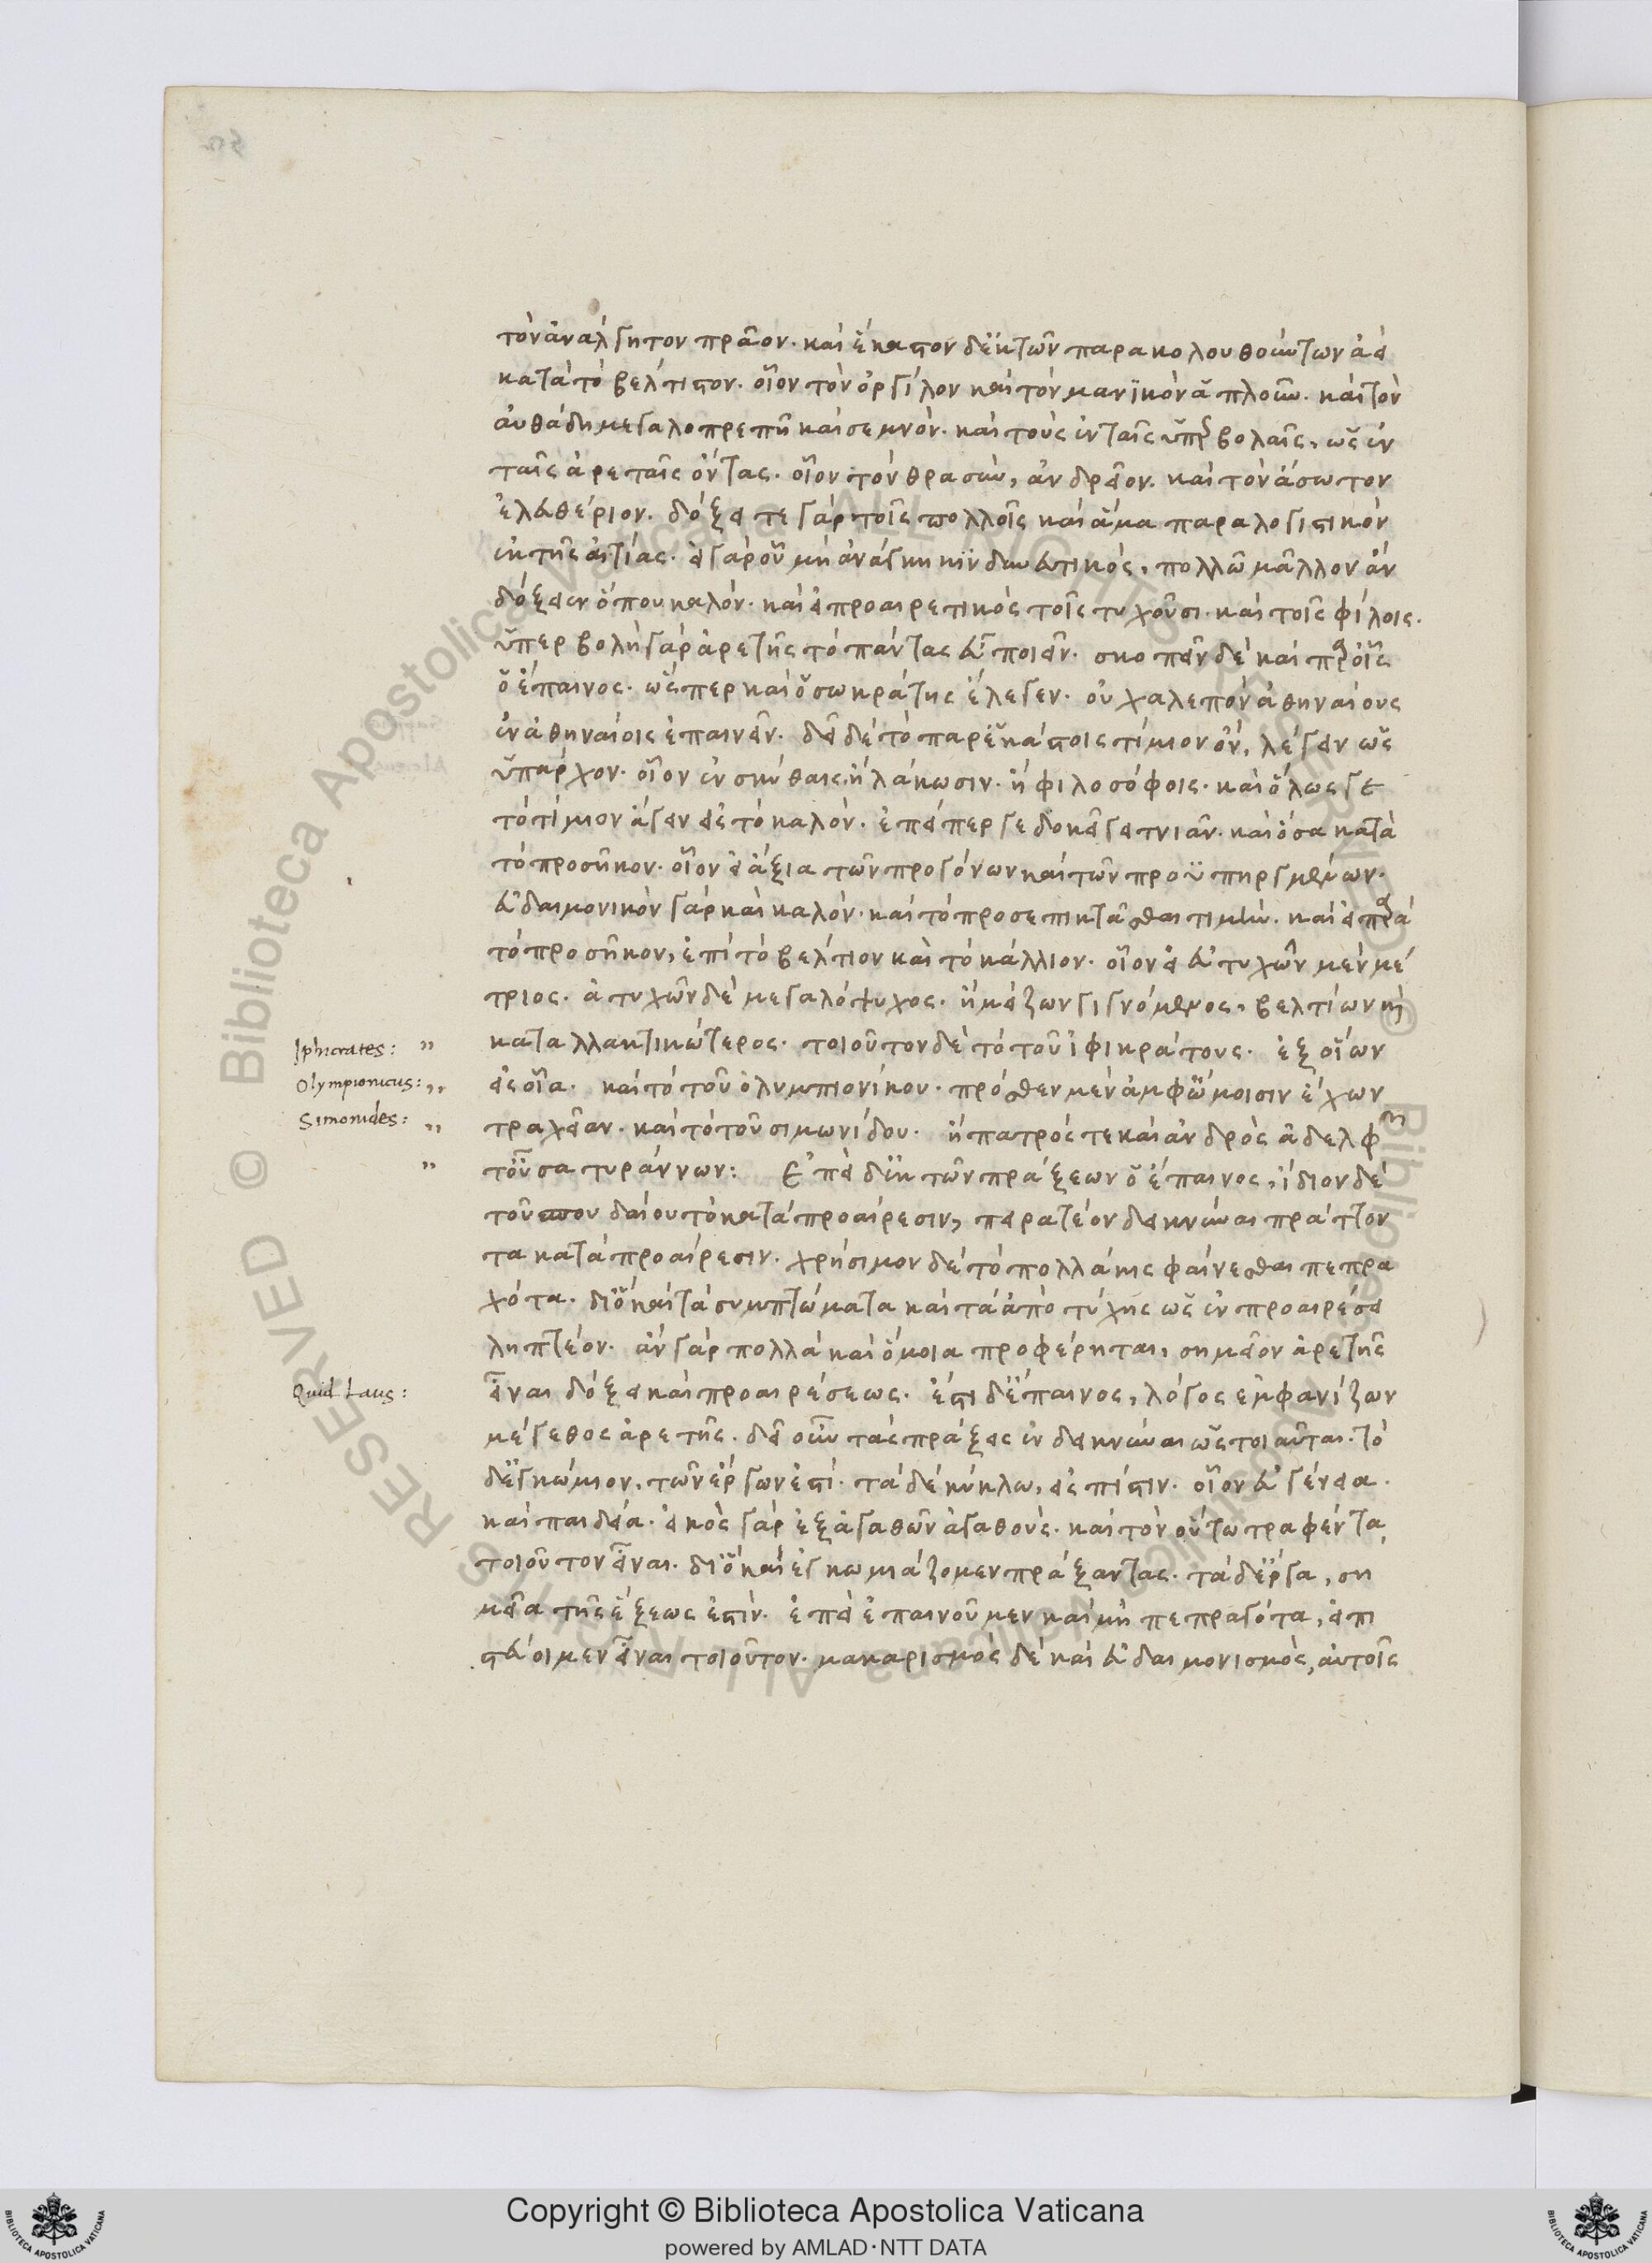 τὸν ἀνάλγητον πρᾶον. καὶ ἕκαστον δ' ἐκ τῶν παρακολουθούντων ἀεὶ
κατὰ τὸ βέλτιστον. οἷον τὸν ὀργίλον καὶ τὸν μανϊκὸν ἁπλοῦν. καὶ τὸν
αὐθάδη μεγαλοπρεπῆ καὶ σεμνόν. καὶ τοὺς ἐν ταῖς ὑπερβολαῖς, ὡς ἐν
ταῖς ἀρεταῖς ὄντας. οἷον τὸν θρασὺν, ἀνδρεῖον. καὶ τὸν ἄσωτον
ἐλευθέριον. δόξει τε γὰρ τοῖς πολλοῖς καὶ ἅμα παραλογιστικὸν
ἐκ τῆς αἰτίας. εἰ γὰρ οὗ μὴ ἀνάγκη κινδυνευτικὸς, πολλῷ μᾶλλον ἂν
δόξειεν ὅπου καλόν. καὶ εἰ προαιρετικὸς τοῖς τυχοῦσι. καὶ τοῖς φίλοις.
ὑπερβολὴ γὰρ ἀρετῆς τὸ πάντας εὖ ποιεῖν. σκοπεῖν δὲ καὶ πρὸς οἷς
ὁ ἔπαινος. ὥσπερ καὶ ὁ σωκράτης ἔλεγεν. οὐ χαλεπὸν ἀθηναίους
ἐν ἀθηναίοις ἐπαινεῖν. δεῖ δὲ τὸ παρ' ἑκάστοις τίμιον ὂν, λέγειν ὡς
ὑπάρχον. οἷον ἐν σκύθαις ἢ λάκωσιν. ἢ φιλοσόφοις. καὶ ὅλως γε
τὸ τίμιον ἄγειν εἰς τὸ καλόν. ἐπείπερ γε δοκεῖ γειτνιᾶν. καὶ ὅσα κατὰ
τὸ προσῆκον. οἷον εἰ ἄξια τῶν προγόνων καὶ τῶν προϋπηργμένων.
εὐδαιμονικὸν γὰρ καὶ καλὸν. καὶ τὸ προσεπικτᾶσθαι τιμὴν. καὶ εἰ παρὰ
τὸ προσῆκον, ἐπὶ τὸ βέλτιον καὶ τὸ κάλλιον. οἷον εἰ εὐτυχῶν μὲν μέ
τριος. ἀτυχῶν δὲ μεγαλόψυχος. ἢ μείζων γιγνόμενος, βελτίων καὶ
Iphicrates: " καταλλακτικώτερος. τοιοῦτον δὲ τὸ τοῦ ἰφικράτους. ἐξ οἵων
Olympionicus: " εἰς οἷα. καὶ τὸ τοῦ ὀλυμπιονίκου. πρόσθεν μὲν ἀμφ' ὤμοισιν ἔχων
Simonides: " τραχεῖαν. καὶ τὸ τοῦ σιμωνίδου. ἢ πατρός τε καὶ ἀνδρὸς ἀδελφῶν
" τ' οὖσα τυράννων: Ἐπεὶ δ' ἐκ τῶν πράξεων ὁ ἔπαινος, ἴδιον δὲ
τοῦ σπουδαίου τὸ κατὰ προαίρεσιν, πειρατέον δεικνύναι πράττον
τα κατὰ προαίρεσιν. χρήσιμον δὲ τὸ πολλάκις φαίνεσθαι πεπρα
χότα. διὸ καὶ τὰ συμπτώματα καὶ τὰ ἀπὸ τύχης ὡς ἐν προαιρέσει
ληπτέον. ἂν γὰρ πολλὰ καὶ ὅμοια προφέρηται, σημεῖον ἀρετῆς
Quid Laus: εἶναι δόξει καὶ προαιρέσεως. ἔστι δ' ἔπαινος, λόγος ἐμφανίζων
μέγεθος ἀρετῆς. δεῖ οὖν τὰς πράξεις ἐνδεικνύναι ὡς τοιαῦται. τὸ
δ' ἐγκώμιον, τῶν ἔργων ἐστί. τὰ δὲ κύκλω, εἰς πίστιν. οἷον εὐγένεια.
καὶ παιδεία. εἰκὸς γὰρ ἐξ ἀγαθῶν ἀγαθοὺς. καὶ τὸν οὕτω τραφέντα,
τοιοῦτον εἶναι. διὸ καὶ ἐγκωμιάζομεν πράξαντας. τὰ δ' ἔργα, ση
μεῖα τῆς ἕξεως ἐστίν. ἐπεὶ ἐπαινοῦμεν καὶ μὴ πεπραγότα, εἰ πι
στεύοιμεν εἶναι τοιοῦτον. μακαρισμὸς δὲ καὶ εὐδαιμονισμὸς, αὐτοῖς
Copyright © Biblioteca Apostolica Vaticana
powered by AMLAD·NTT DATA